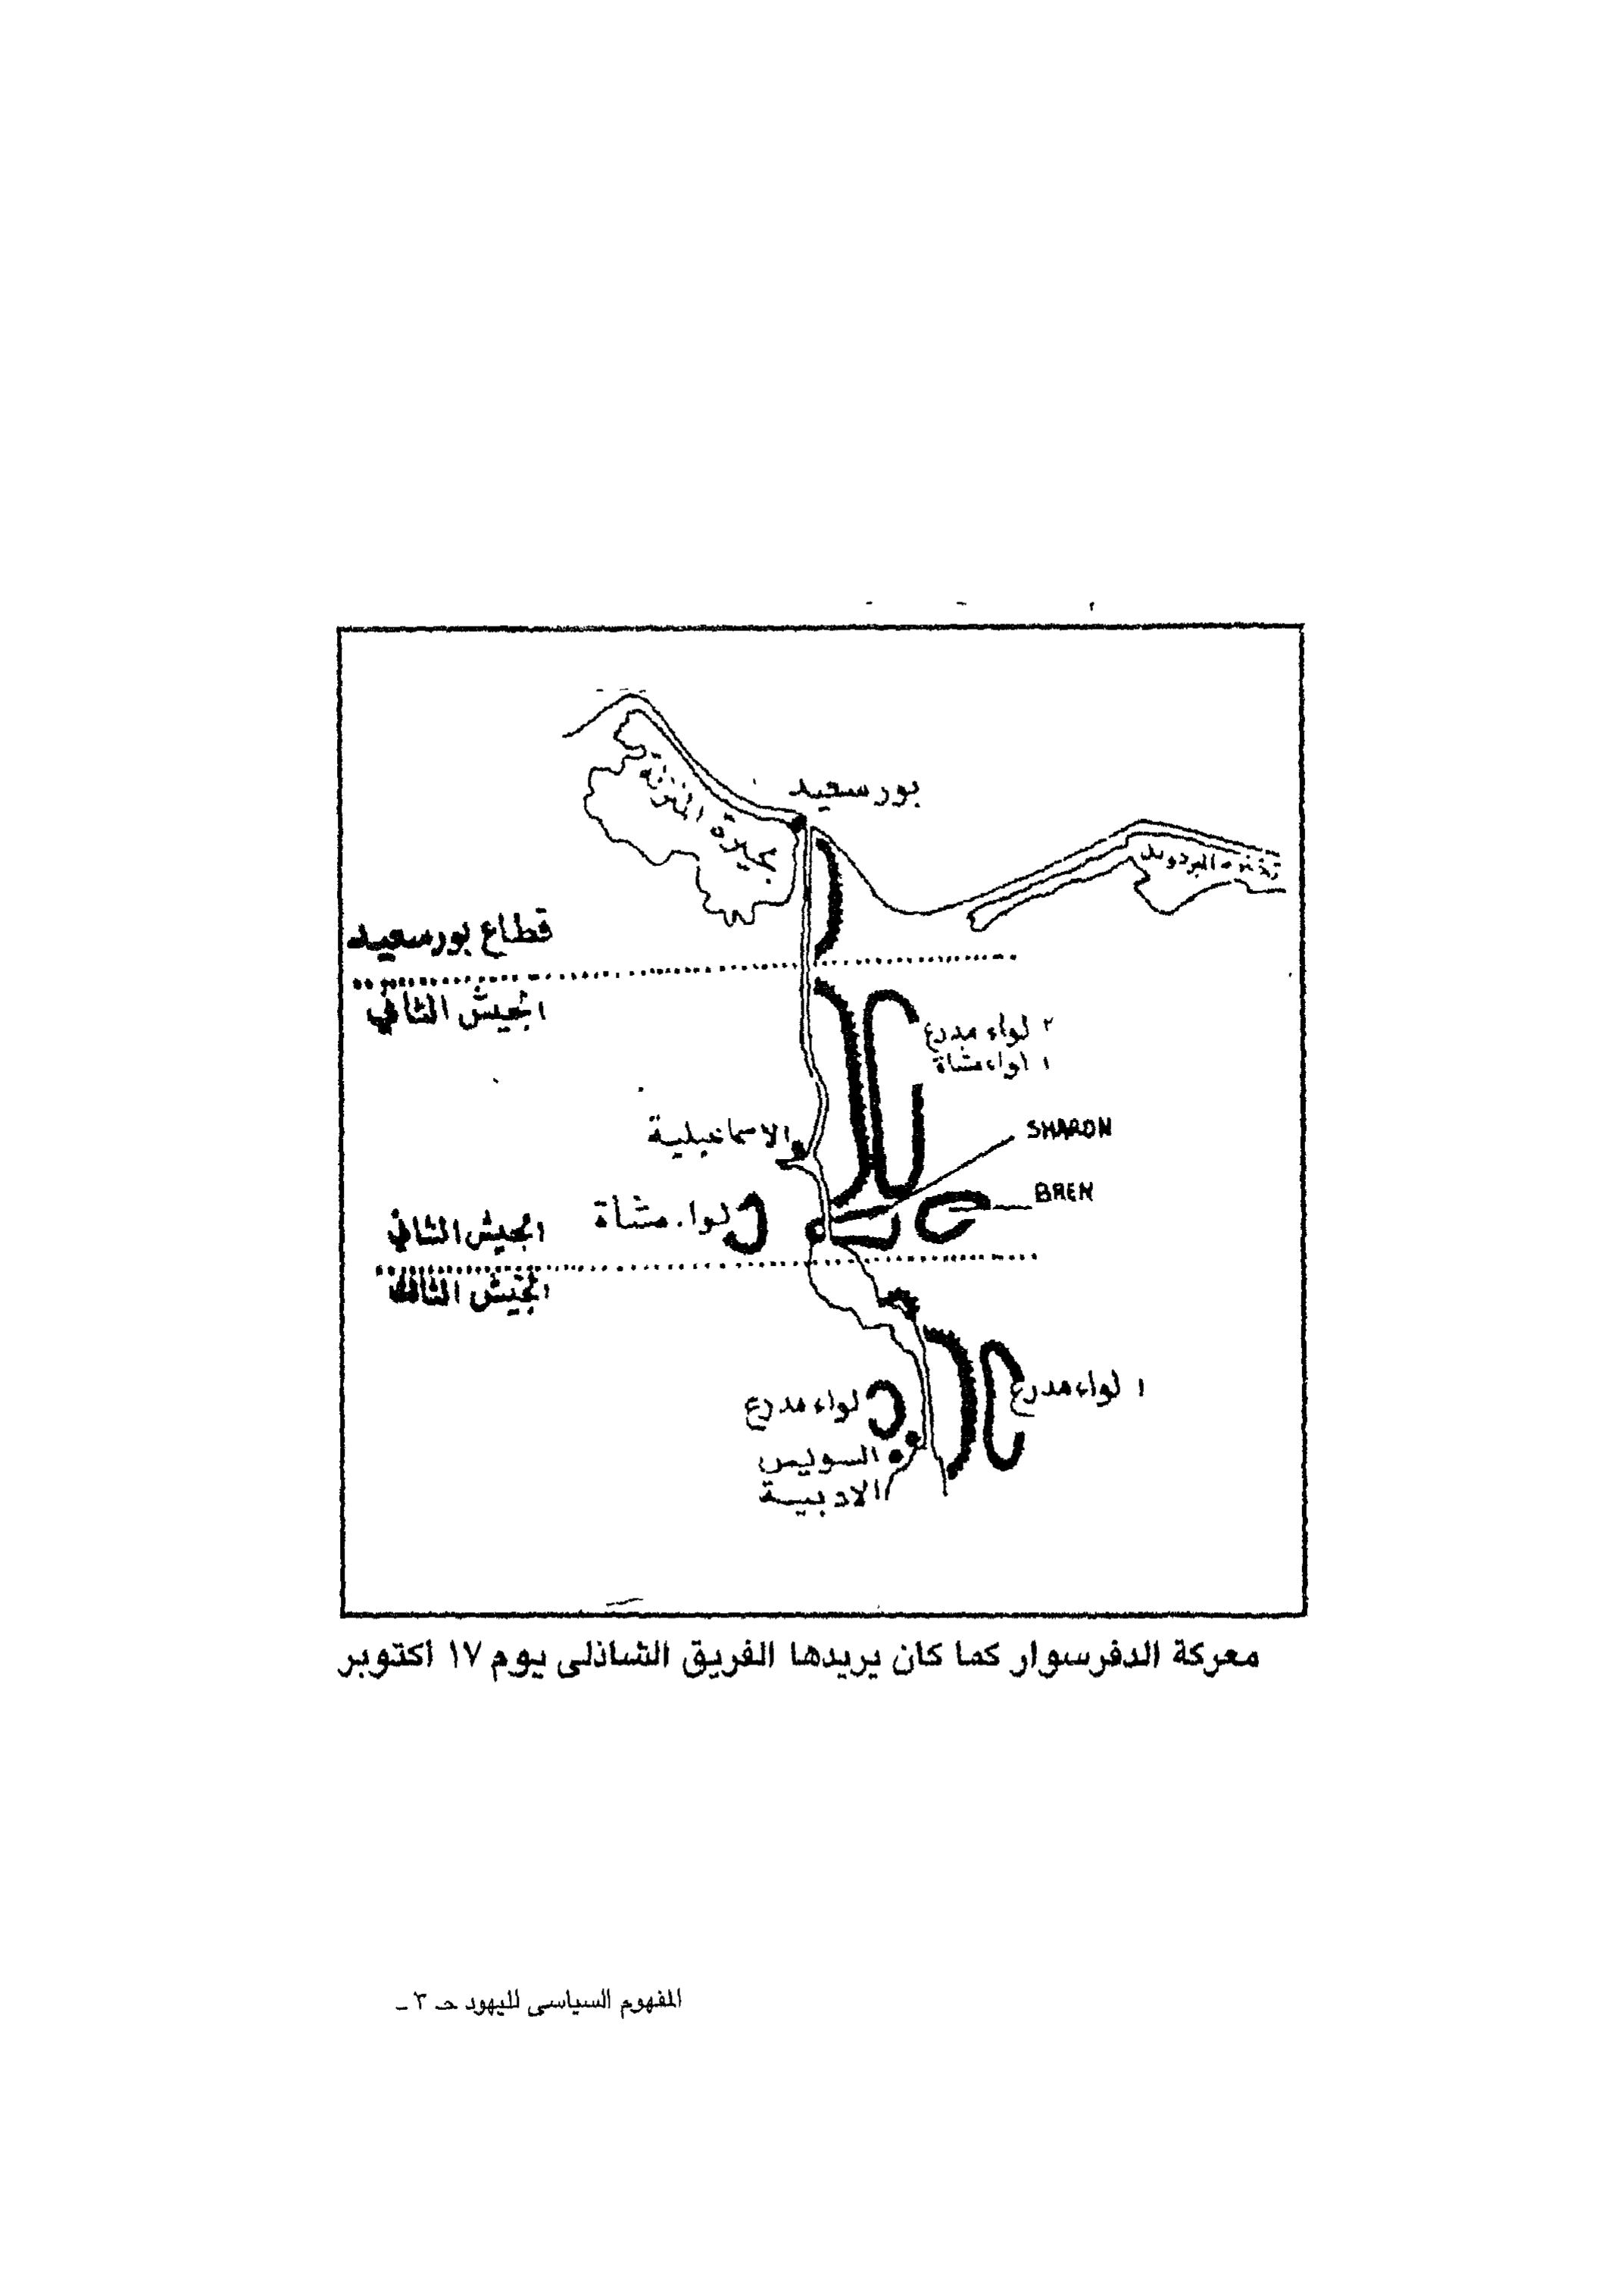 بورسعيد
بحيرة المنزلة
البردويل
قطاع بورسعيد
الجيش الثاني
٢ لواء مدرع
١ لواء مشاة
الاسماعيلية
SHARON
BREN
لواء مشاة
الجيش الثاني
الجيش الثالث
١ لواء مدرع
لواء مدرع
السويس
الادبية
معركة الدفرسوار كما كان يريدها الفريق الشاذلى يوم ١٧ اكتوبر
المفهوم السياسى لليهود حـ ٣ ـ